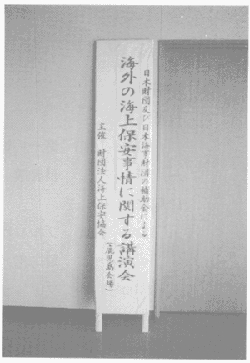 日本財団及び日本海事財団の補助金による
海外の海上保安事情に関する講演会
主催 財団法人海上保安協会